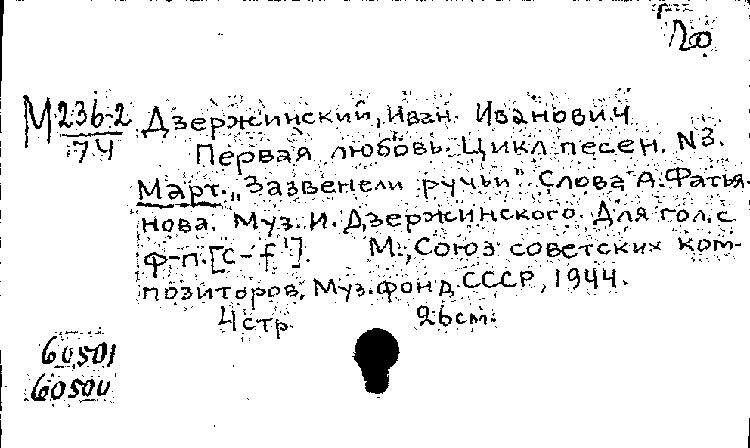 До
М 236-2 Дзержинский, Иван Иванович
74 Первая любовь. Цикл песен. N3.
Март. "Зазвенели ручьи". Слова А. Фатья-
нова. Муз. И. Дзержинского. Для гол. с
ф-п. [c-f']. М., Союз советских ком-
позиторов, Муз. фонд СССР, 1944.
4 стр. 26 см.
60501
60500